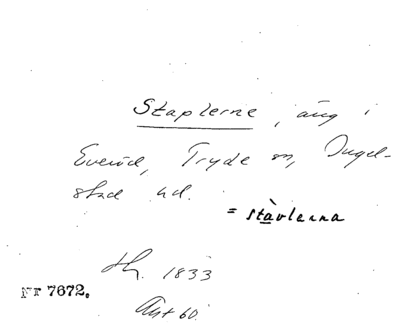 Staplerne, äng i
Everöd, Tryde sn, Ingel-
stad hd.
= stàvlerna
1833
Nr 7672.